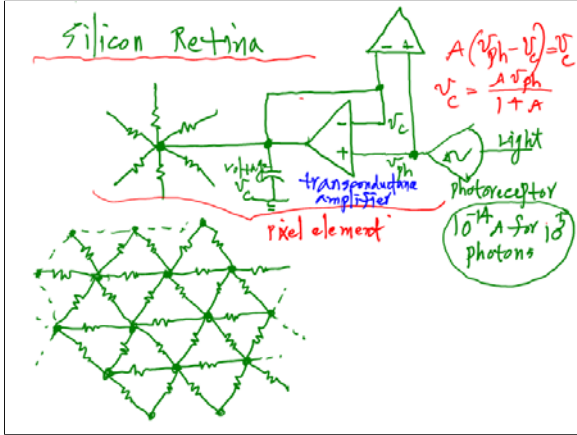 Silicon Retina
A(vph - vc) = vc
vc = A vph / 1 + A
- +
-
vc
+
vph
Light
voltage
vc
transponductane
amplifier
photoreceptor
pixel element
10^-14 A for 10^5
photons